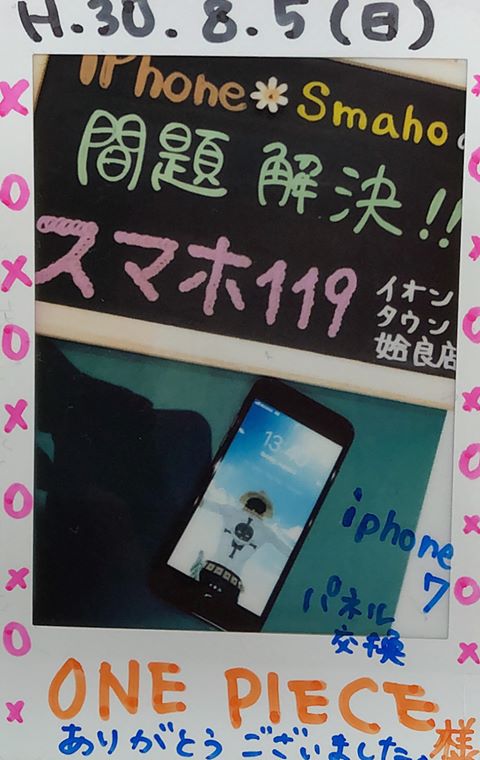 H.30.8.5(日)
iPhone Smaho
問題 解決!!
スマホ119
イオン
タウン
姶良店
iphone
7
パネル
交換
ONE PIECE様
ありがとうございました。